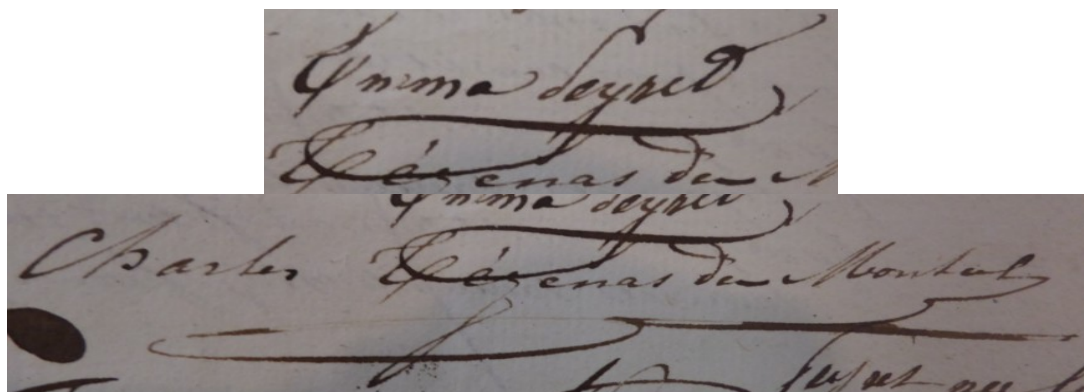 Emma Peyret
Tézenas du M
Emma Peyret
Charles Tézenas du Montcel